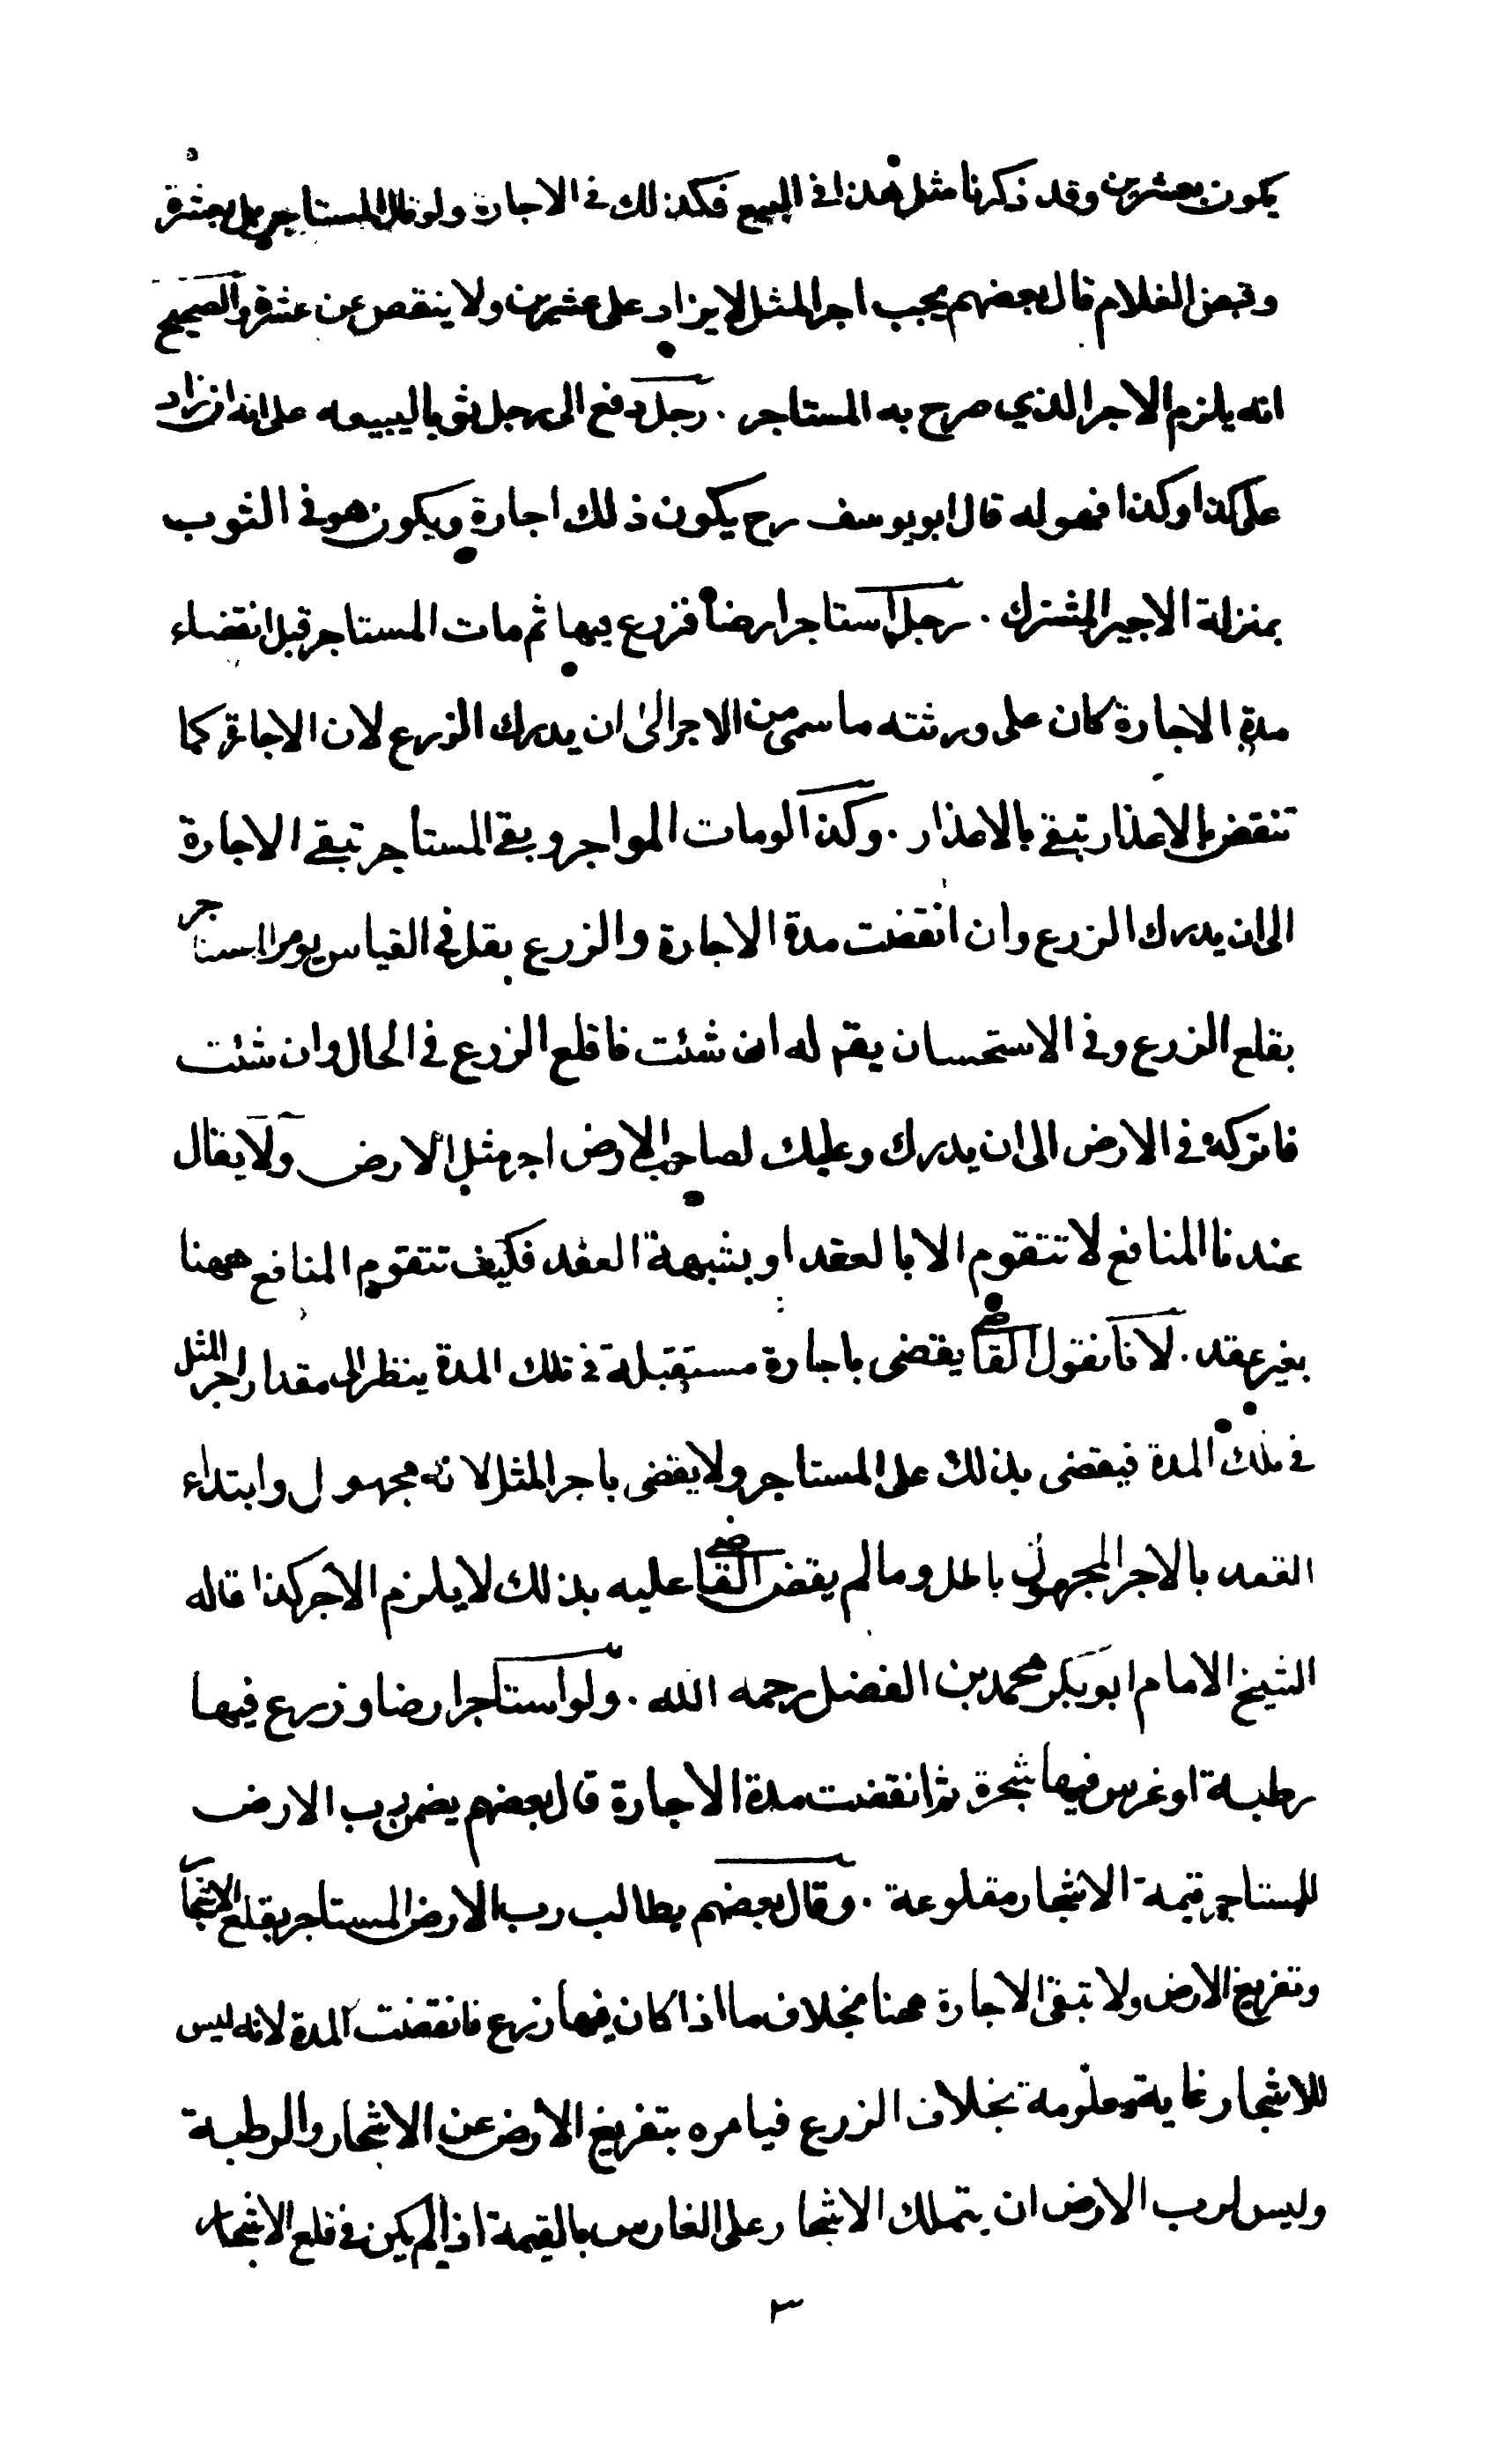 يكون بعشرين وقد ذكرنا مثل هذا في البيع فكذلك في الاجارة ولو قال المستاجر بل بعشرة
وقبض الغلام قال بعضهم يجب اجر المثل لا يزاد على عشرين ولا ينقص عن عشرة والصحيح
انه يلزم الاجر الذي صرح به المستاجر . رجل دفع الى رجل ثوبا ليبيعه على انه ان زاد
على كذا وكذا فهو له قال ابو يوسف رح يكون ذلك اجارة ويكون هو في الثوب
بمنزلة الاجير المشترك . رجل استاجر ارضا فزرع فيها ثم مات المستاجر قبل انقضاء
مدة الاجارة كان على ورثته ما سمى من الاجر الى ان يدرك الزرع لان الاجارة كما
تنقض بالاعذار تبقى بالاعذار . وكذا لو مات المواجر وبقي المستاجر تبقى الاجارة
الى ان يدرك الزرع وان انقضت مدة الاجارة والزرع بقل في القياس يومر المستاجر
بقلع الزرع وفي الاستحسان يقم له ان شئت فاقلع الزرع في الحال وان شئت
فاتركه في الارض الى ان يدرك وعليك لصاحب الارض اجر مثل الارض ولا يقال
عندنا المنافع لا تتقوم الا بالعقد او بشبهة العقد فكيف تتقوم المنافع ههنا
بغير عقد . لانا نقول القاضي يقضى باجارة مستقبلة في تلك المدة ينظر الى مقدار اجر المثل
في تلك المدة فيقضى بذلك على المستاجر ولا يقضى باجر المثل لانه مجهول وابتداء
العقد بالاجر المجهول باطل وما لم يقض القاضي عليه بذلك لا يلزم الاجر كذا قاله
الشيخ الامام ابو بكر محمد بن الفضل رحمه الله . ولو استاجر ارضا وزرع فيها
رطبة او غرس فيها شجرة ثم انقضت مدة الاجارة قال بعضهم يضمن رب الارض
للمستاجر قيمة الاشجار مقلوعة . وقال بعضهم يطالب رب الارض المستاجر بقلع الاشجار
وتفريغ الارض ولا تبقى الاجارة ههنا بخلاف ما اذا كان فيها زرع فانقضت المدة لانه ليس
للاشجار غاية معلومة بخلاف الزرع فيامره بتفريغ الارض عن الاشجار والرطبة
وليس لرب الارض ان يتملك الاشجار على الغارس بالقيمة اذا لم يكن في قلع الاشجار
٣